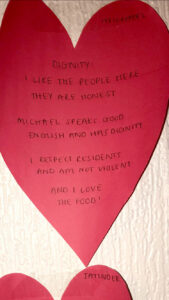 DIGNITY:
I LIKE THE PEOPLE HERE
THEY ARE HONEST
MICHAEL SPEAKS GOOD
ENGLISH AND HAS DIGNITY
I RESPECT RESIDENTS
AND AM NOT VIOLENT
AND I LOVE
THE FOOD!